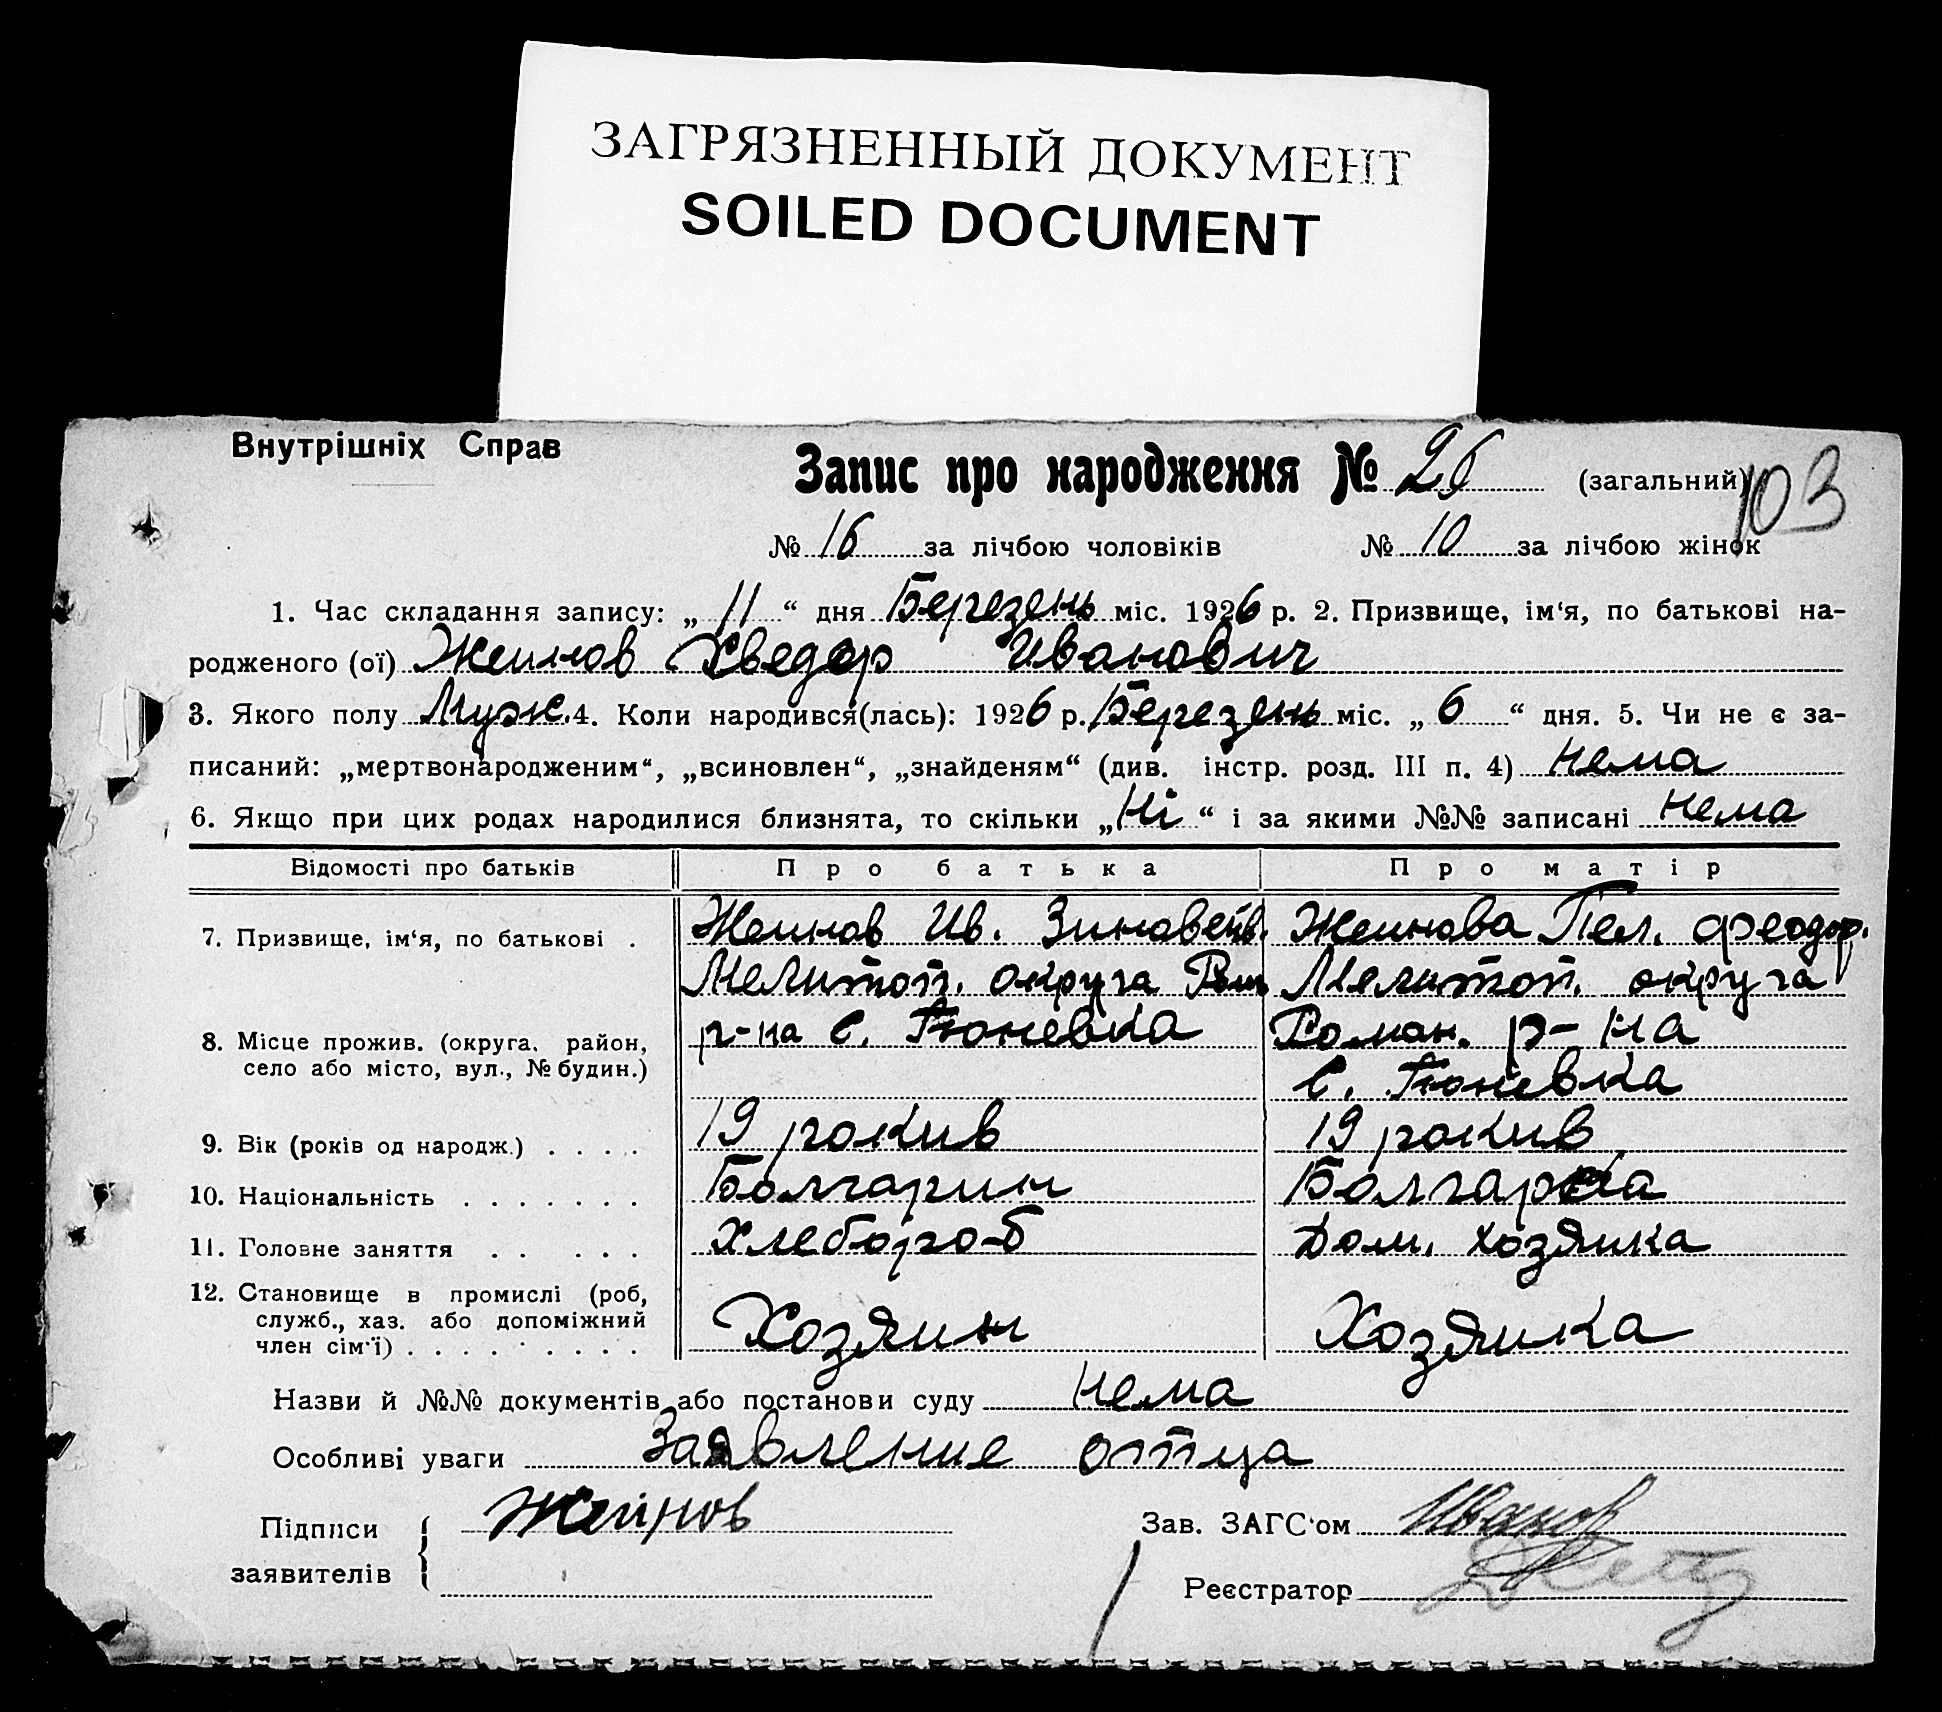 ЗАГРЯЗНЕННЫЙ ДОКУМЕНТ
SOILED DOCUMENT
Внутрішніх Справ
Запис про народження № 26 (загальний)
103
№ 16 за лічбою чоловіків № 10 за лічбою жінок
1. Час складання запису: „11“ дня Березень міс. 1926 р. 2. Призвище, ім‘я, по батькові на-
родженого (ої) Жейнов Хведор Иванович
3. Якого полу Муж. 4. Коли народився(лась): 1926 р. Березень міс. „6“ дня. 5. Чи не є за-
писаний: „мертвонародженим“, „всиновлен“, „знайденям“ (див. інстр. розд. III п. 4) нема
6. Якщо при цих родах народилися близнята, то скільки „Ні“ і за якими №№ записані нема
Відомості про батьків Про батька Про матір
7. Призвище, ім‘я, по батькові . Жейнов Ив. Зиновейв. Жейнова Пел. Феодор.
Мелитоп. округа Ром. Мелитоп. округа
8. Місце прожив. (округа, район, р-на С. Тюневка Роман. р-на
село або місто, вул., № будин.) С. Тюневка
9. Вік (років од народж.) . . . . 19 рокив 19 рокив
10. Національність . . . . . . . Болгарин Болгарка
11. Головне заняття . . . . . Хлебороб Дом. хозяйка
12. Становище в промислі (роб,
служб., хаз. або допоміжний Хозяин Хозяйка
член сім‘ї) . . . . . . . . .
Назви й №№ документів або постанови суду нема
Особливі уваги Заявление отца
Підписи Жейнов Зав. ЗАГС‘ом Иванов
заявителів Реєстратор